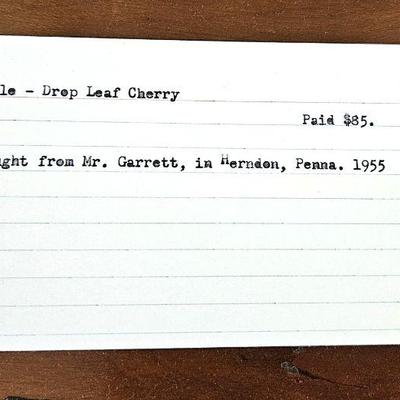 le - Drop Leaf Cherry
Paid $85.
ught from Mr. Garrett, in Herndon, Penna. 1955